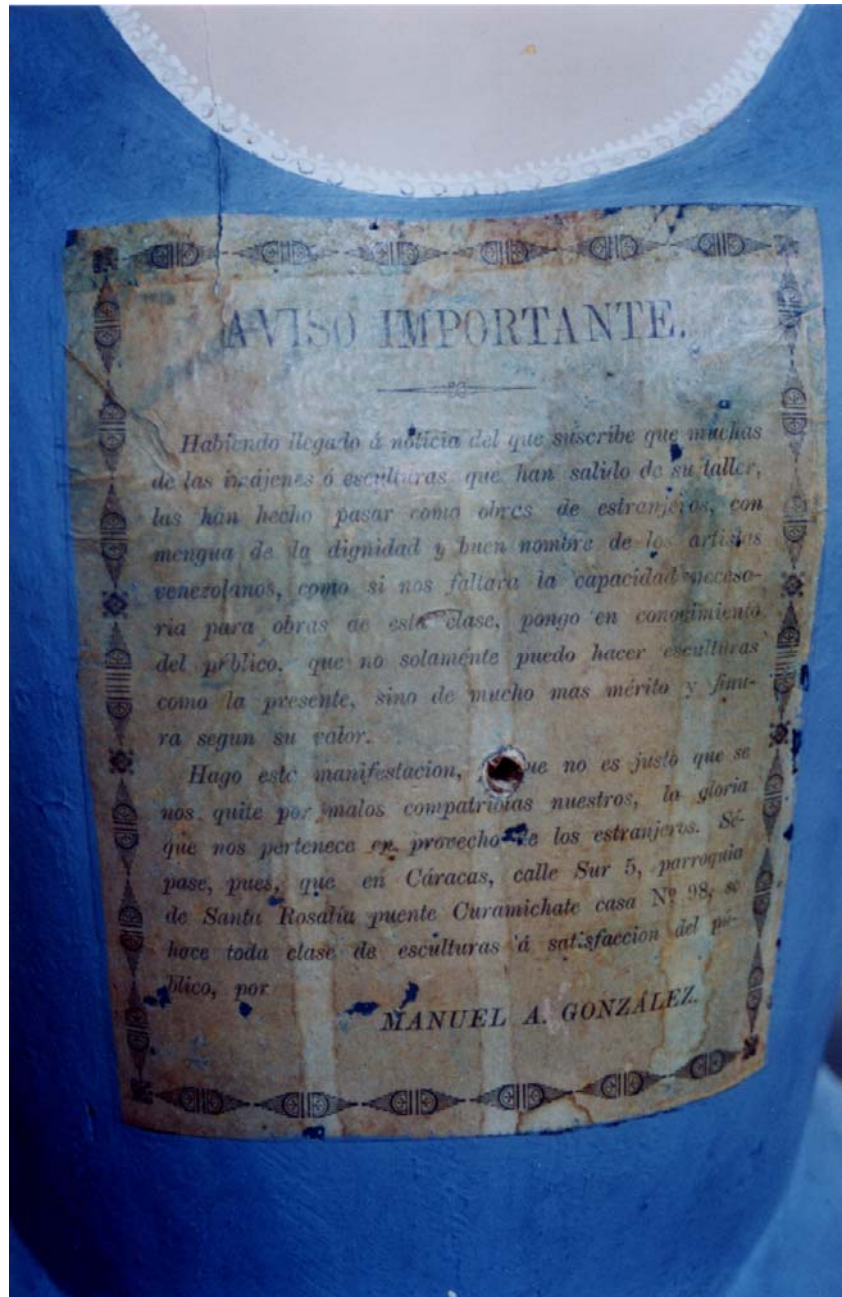 AVISO IMPORTANTE.
Habiendo llegado á noticia del que suscribe que muchas
de las imájenes ó esculturas que han salido de su taller,
las han hecho pasar como obres de estranjeros, con
mengua de la dignidad y buen nombre de los artistas
venezolanos, como si nos faltara la capacidad necesa-
ria para obras de esta clase, pongo en conocimiento
del público, que no solaménte puedo hacer esculturas
como la presente, sino de mucho mas mérito y finu-
ra segun su valor.
Hago este manifestacion, ue no es justo que se
nos quite por malos compatriotas nuestros, la gloria
que nos pertenece en provecho de los estranjeros. Sé-
pase, pues, que en Cáracas, calle Sur 5, parroquia
de Santa Rosalía puente Curamichate casa Nº 98, se
hace toda clase de esculturas á satisfaccion del pú-
blico, por
MANUEL A. GONZÁLEZ.